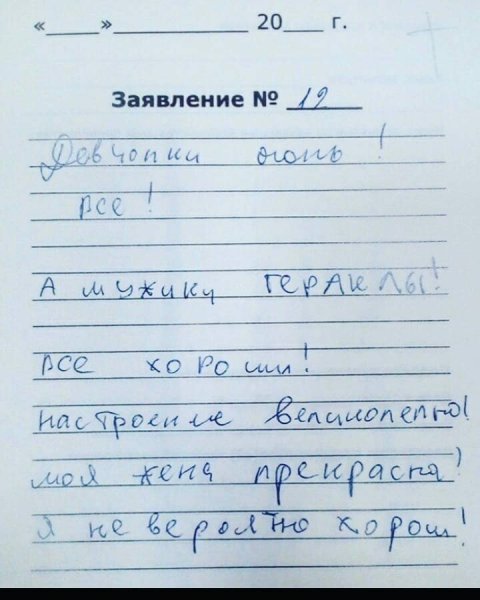 «____»____________ 20___ г.
Заявление № 12
Девчонки огонь!
все!
А мужики ГЕРАКЛЫ!
все хороши!
настроение великолепно!
моя жена прекрасна!
Я не вероятно хорош!